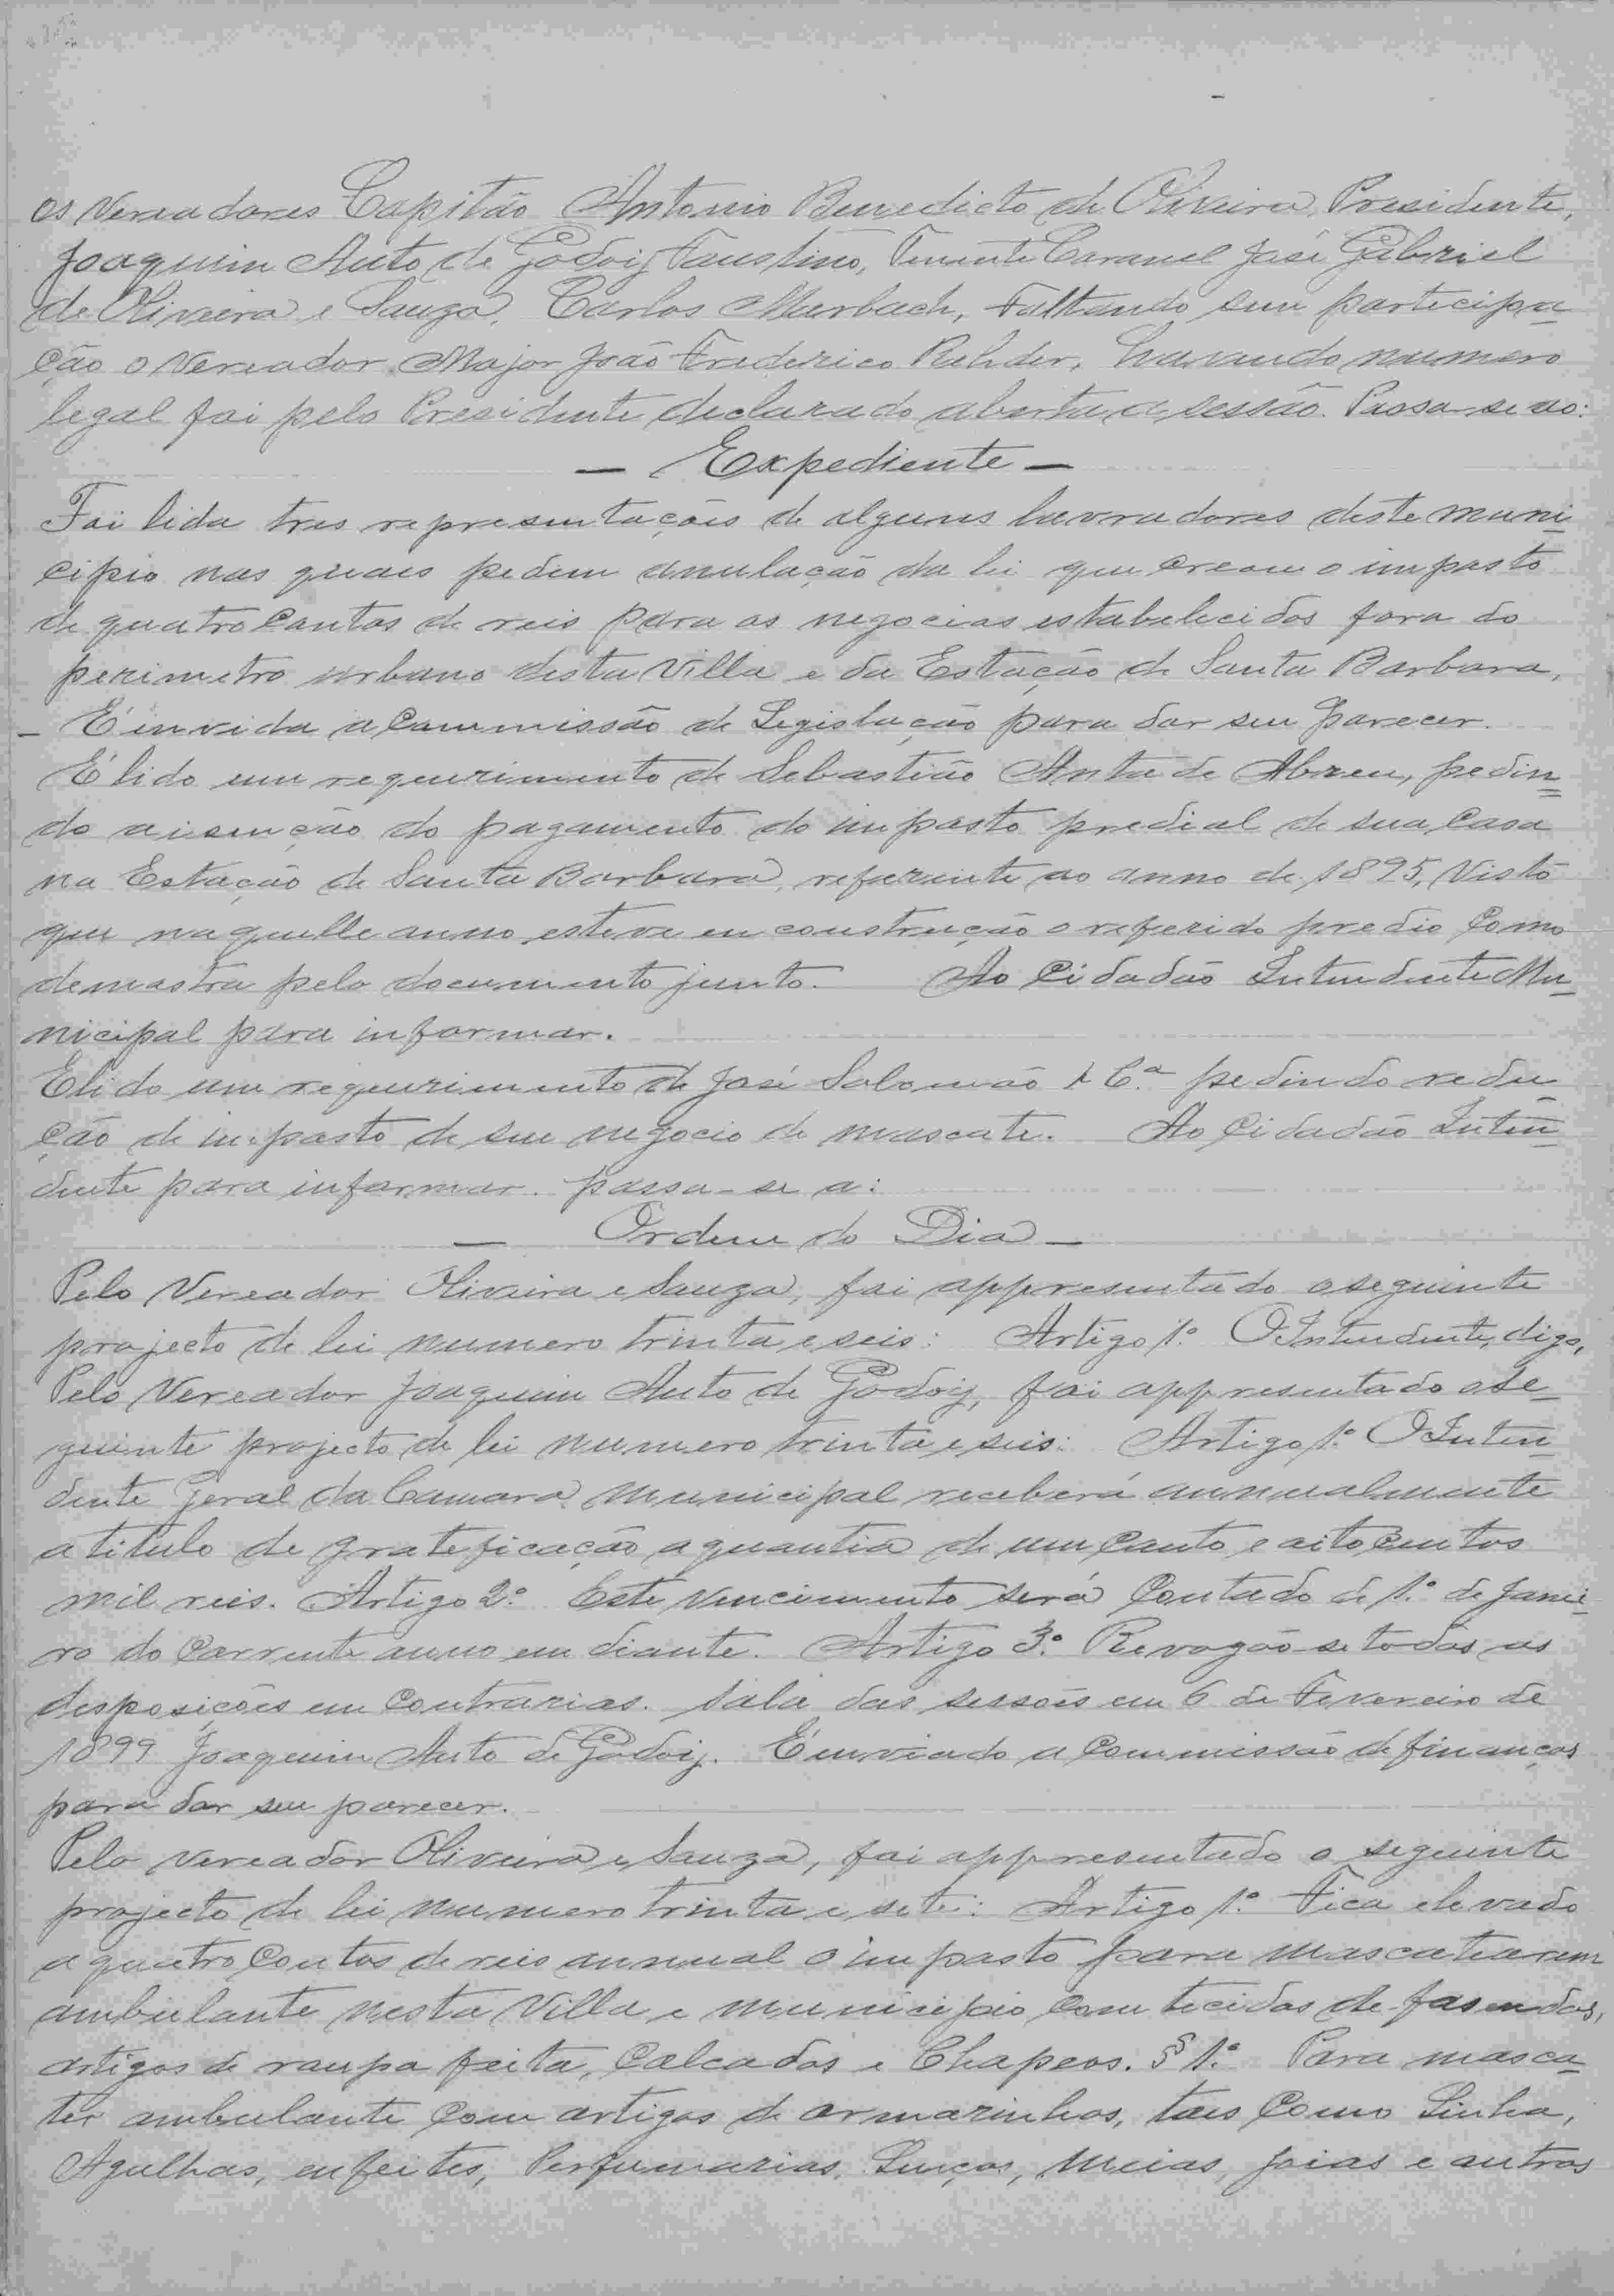 os Vereadores Capitão Antonio Benedicto de Oliveira, Presidente,
Joaquim Auto de Godoij Faustino, Tenente Coronel José Gabriel
de Oliveira e Souza, Carlos Murbach, Faltando sem participa-
ção o Vereador Major João Frederico Rehder, havendo numero
legal foi pelo Presidente declarado aberta a sessão. Passa-se ao:
— Expediente —
Foi lida tres representações de alguns lavradores deste muni-
cipio nas quaes pedem anulação da lei que creou o imposto
de quatro Contos de reis para os negocios estabelecidos fora do
perimetro urbano desta Villa e da Estação de Santa Barbara,
— É invida a Commissão de Legislação para dar seu parecer.
É lido um requerimento de Sebastião Anta de Abreu, pedin-
do aisenção do pagamento do imposto predial de sua Casa
na Estação de Santa Barbara, referente ao anno de 1895, Visto
que naquelle anno esteve en construção o referido predio Como
demostra pelo documento junto. Ao Cidadão Intendente Mu-
nicipal para informar.
É lido um requerimento de José Salomão & C.ª pedindo redu-
ção de imposto de seu negocio de mascate. Ao Cidadão Inten-
dente para informar. passa-se a:
— Ordem do Dia —
Pelo Vereador Oliveira e Souza, foi appresentado o seguinte
projecto de lei numero trinta e seis: Artigo 1.º O Intendente, digo,
Pelo Vereador Joaquim Auto de Godoij, foi appresentado o se-
guinte projecto de lei numero trinta e seis: Artigo 1.º O Inten-
dente Geral da Camara Municipal receberá annualmente
a titulo de grateficação a quantia de um Conto e oito Centos
mil reis. Artigo 2.º Este vencimento será Contado de 1.º de Janei-
ro do Corrente anno em diante. Artigo 3.º Revogão-se todas as
desposições em Contrarias. Sala das sessoẽs em 6 de Fevereiro de
1899 Joaquim Auto de Godoij. É enviado a Commissão de finanças
para dar seu parecer.
Pelo vereador Oliveira e Souza, foi appresentado o seguinte
projecto de lei numero trinta e sete: Artigo 1.º Fica elevado
a quatro Contos de reis annual o imposto para mascatearem
ambulante nesta Villa e municipio Com tecidos de fasendas,
artigos de roupa feita, Calcados e Chapeos. § 1.º Para masca-
ter ambulante Com artigos de armarinhos, taes Como Linha,
Agulhas, enfeites, Perfumarias, Lenços, Meias, joias e outros